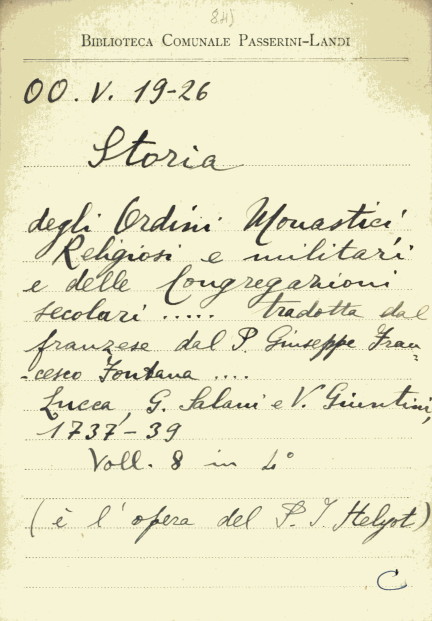 BIBLIOTECA COMUNALE PASSERINI-LANDI
OO. V. 19-26
Storia
degli Ordini Monastici
Religiosi e militari
e delle Congregazioni
secolari ..... tradotta dal
franzese dal P. Giuseppe Fran=
=cesco Fontana ....
Lucca, G. Salani e V. Giuntini,
1737-39
Voll. 8 in 4°
(è l'opera del P. I. Helyot)
C